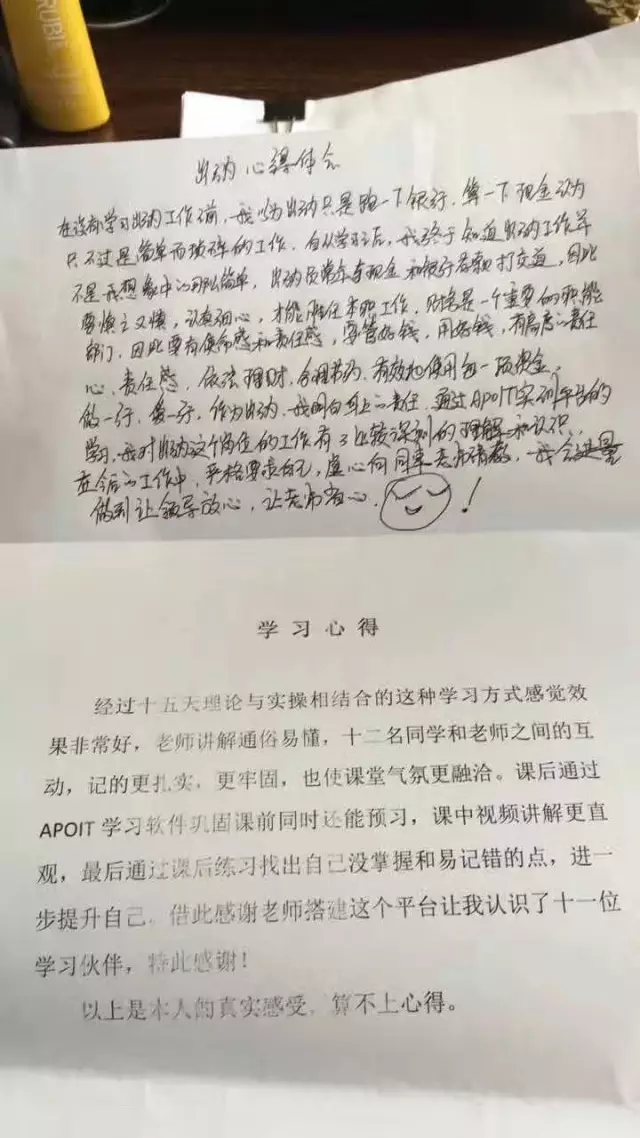 RUBIE
出纳心得体会
在没有学习出纳工作前，我以为出纳只是跑一下银行、算一下现金认为
只不过是简单而琐碎的工作。自从学习之后，我终于知道出纳工作并
不是我想象中的那么简单，出纳员常年与现金和银行存款打交道，因此
要慎之又慎，认真细心，才能胜任本职工作。财务是一个重要的职能
部门，因此要有使命感和责任感，要管好钱，用好钱，有高度的责任
心、责任感，依法理财，合理节约、有效地使用每一项资金。
做一行，爱一行，作为出纳，我明白身上的责任，通过APOIT实训平台的
学习，我对出纳这个岗位的工作有了比较深刻的理解和认识，
在今后的工作中，严格要求自己，虚心向同事老师请教，我会尽量
做到让领导放心，让老师省心。！
学习心得
经过十五天理论与实操相结合的这种学习方式感觉效
果非常好，老师讲解通俗易懂，十二名同学和老师之间的互
动，记的更扎实，更牢固，也使课堂气氛更融洽。课后通过
APOIT 学习软件巩固课前同时还能预习，课中视频讲解更直
观，最后通过课后练习找出自己没掌握和易记错的点，进一
步提升自己。借此感谢老师搭建这个平台让我认识了十一位
学习伙伴，特此感谢！
以上是本人的真实感受，算不上心得。